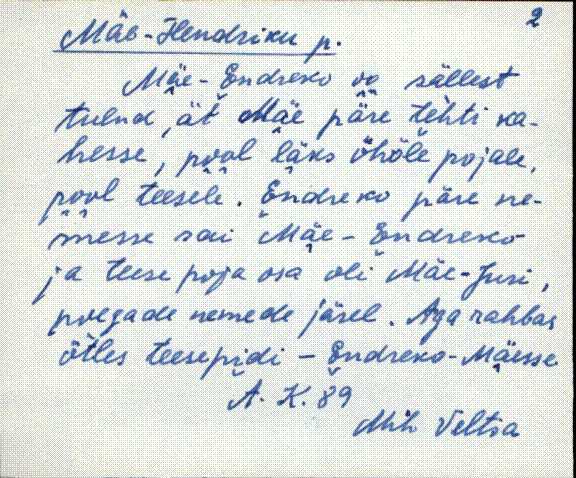 2
Mäe-Hendriku p.
Mäe-Endreko oo sällest
tulnd, ät Mäe päre tehti ka-
hesse, pool läks õhõle pojale,
pool teesele. Endreko päre ne-
messe sai Mäe-Endreko
ja teese poja osa oli Mäe-Juri,
poegade nemede järel. Aga rahbas
õtles teesepidi - Endreko-Mäesse
A. K. 89
Mih Veltsa